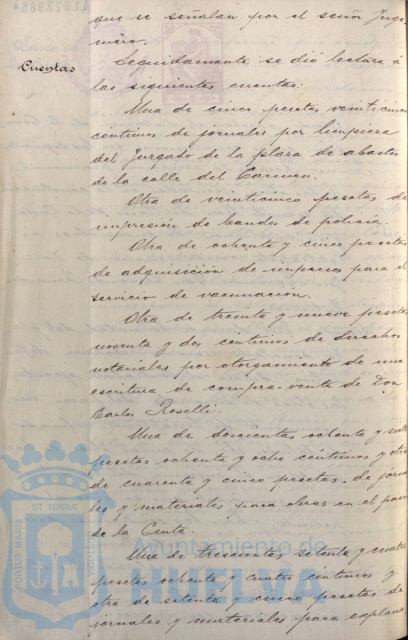 que se señalan por el señor Inge
niero.
Cuentas
Seguidamente se dió lectura á
las siguientes cuentas:
Una de cinco pesetas veinticinco
céntimos de jornales por limpieza
del Juzgado de la plaza de abastos
de la calle del Carmen.
Otra de veinticinco pesetas de
impresión de bandos de policía.
Otra de ochenta y cinco pesetas
de adquisición de impresos para el
servicio de vacunación.
Otra de treinta y nueve pesetas
noventa y dos céntimos de derechos
notariales por otorgamiento de una
escritura de compra-venta de Don
Carlos Roselli.
Una de doscientas ochenta y
pesetas ochenta y ocho céntimos y otra
de cuarenta y cinco pesetas, de jorna
les y materiales para obras en el paseo
de la Cinta.
Una de trescientas setenta y cuatro
pesetas ochenta y cuatro céntimos y
otra de setenta y cinco pesetas de
jornales y materiales para explana
PORTUS MARIS ET TERRAE CUSTODIA
Ayuntamiento de
HUELVA